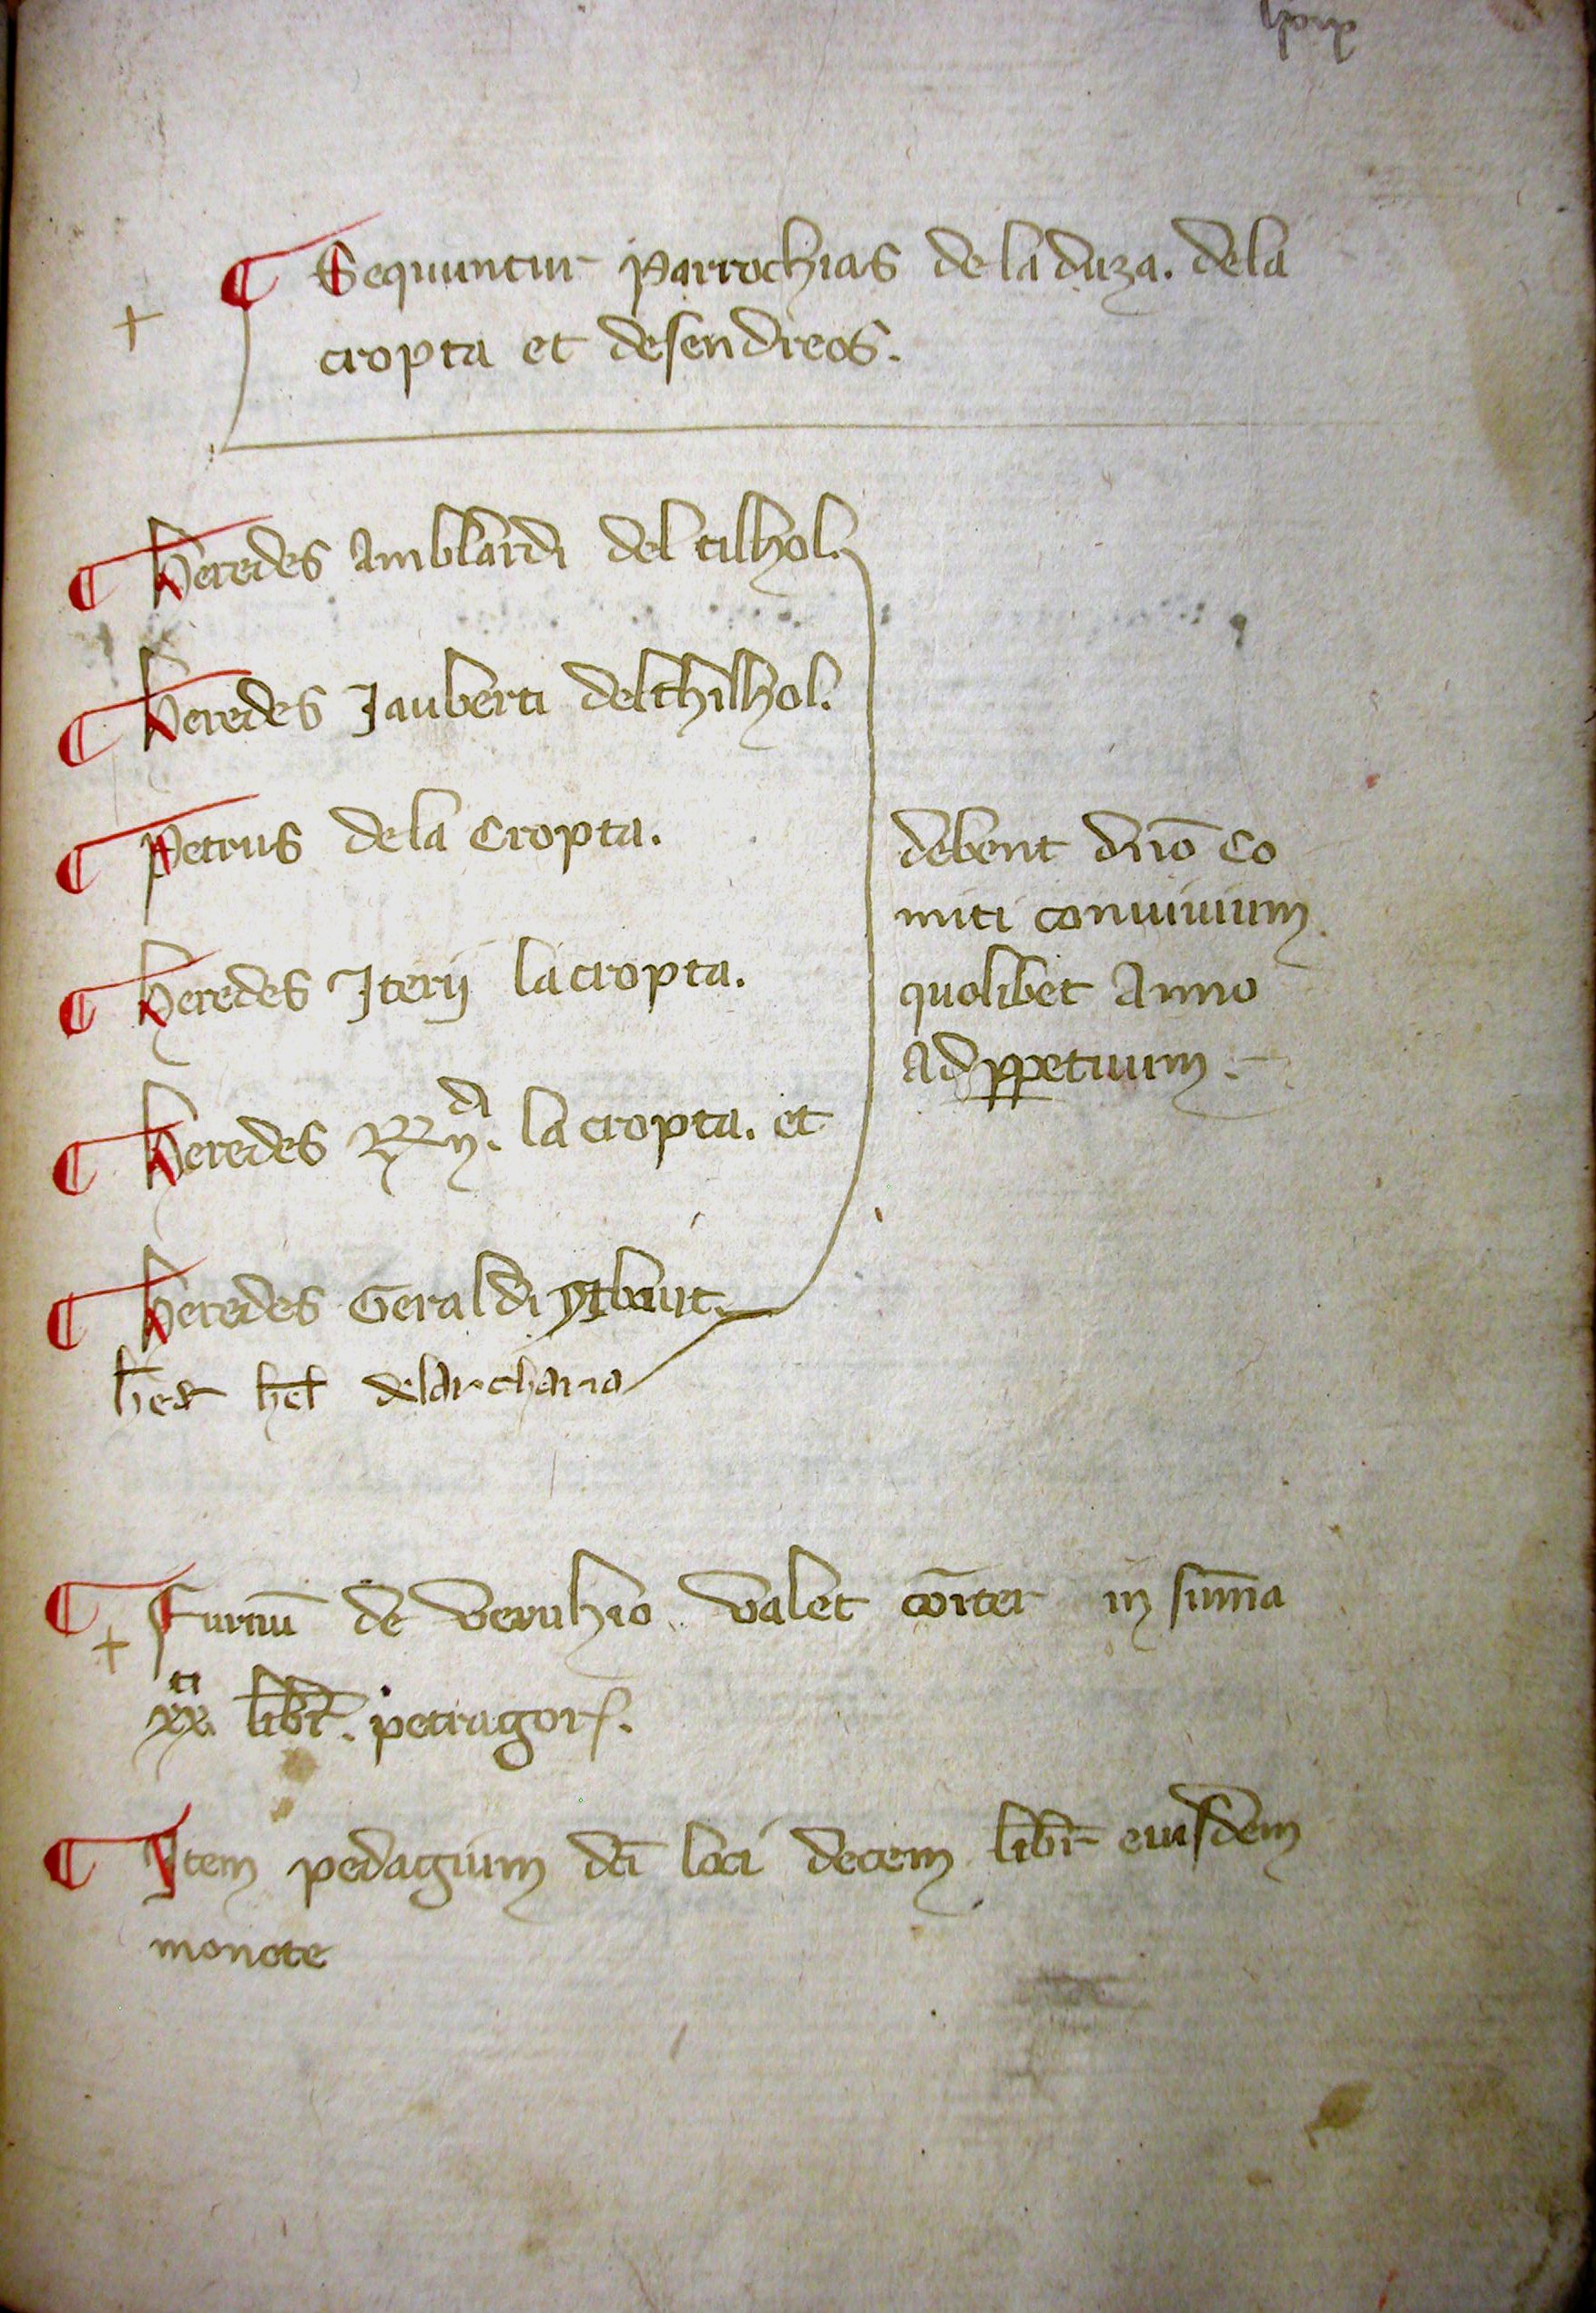 ¶ Sequuntur parrochias de la duza. de la
cropta et desendreos.
¶ Heredes Amblardi del tilhol.
¶ Heredes Jauberti delthilhol.
¶ Petrus de la Cropta.
¶ Heredes Iterii la cropta.
¶ Heredes la cropta. et
¶ Heredes Geraldi
hēd hēl delarchana
debent dn̄o Co
miti convivium
quolibet Anno
Ad ꝑpetuum.
¶ Furnū de vernhio valet cōiter in sum̄a
xxti libr̄. petragor.
¶ Item pedagium dc̄i loci decem libr̄ eiusdem
monete